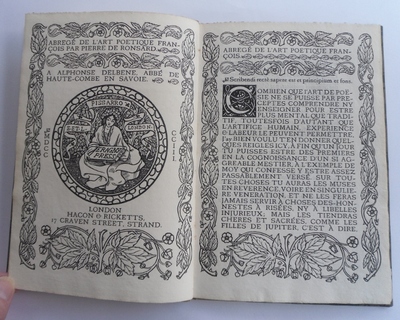 ABREGÉ DE L'ART POETIQUE FRAN-
ÇOIS PAR PIERRE DE RONSARD.
A ALPHONSE DELBENE, ABBÉ DE
HAUTE-COMBE EN SAVOIE.
PISSARRO
LONDON
ERAGNY
PRESS
LONDON
HACON & RICKETTS,
17 CRAVEN STREET, STRAND.
ABREGÉ DE L'ART POETIQUE FRAN-
ÇOIS.
Scribendi rectè sapere est et principium et fons.
COMBIEN QUE L'ART DE POË-
SIE NE SE PUISSE PAR PRE-
CEPTES COMPRENDRE NY
ENSEIGNER POUR ESTRE
PLUS MENTAL QUE TRADI-
TIF, TOUTESFOIS D'AUTANT QUE
L'ARTIFICE HUMAIN, EXPERIENCE
& LABEUR LE PEUVENT PERMETTRE,
J'AY BIEN VOULU T'EN DONNER QUEL-
QUES REIGLES ICY, À FIN QU'UN JOUR
TU PUISSES ESTRE DES PREMIERS EN
LA COGNOISSANCE D'UN SI AG-
GREABLE MESTIER, À L'EXEMPLE DE
MOY QUI CONFESSE Y ESTRE ASSEZ
PASSABLEMENT VERSÉ. SUR TOU-
TES CHOSES TU AURAS LES MUSES
EN REVERENCE, VOIRE EN SINGULIE-
RE VENERATION, ET NE LES FERAS
JAMAIS SERVIR À CHOSES DES-HON-
NESTES À RISEES, NY À LIBELLES
INJURIEUX, MAIS LES TIENDRAS
CHERES ET SACREES, COMME LES
FILLES DE JUPITER, C'EST À DIRE,